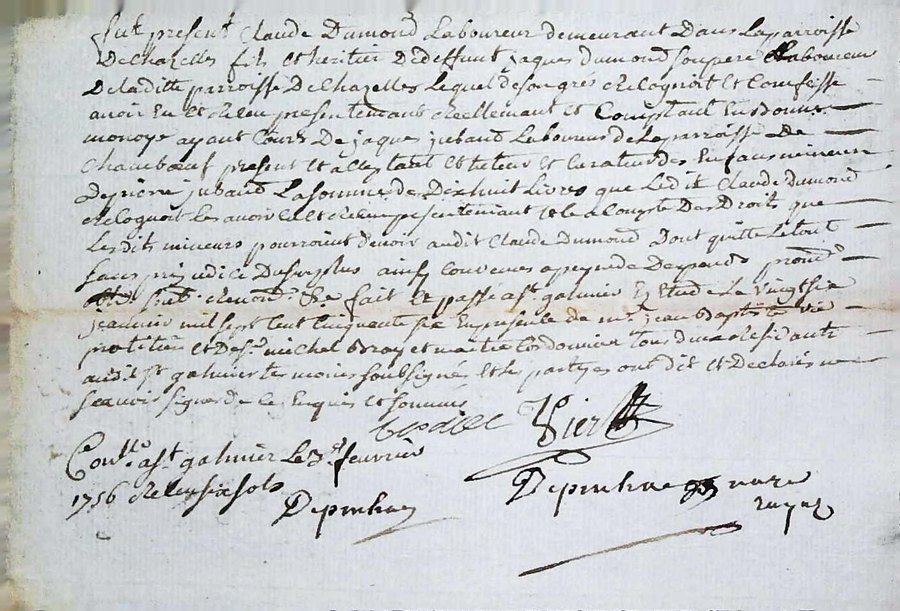 fut present Claude Dumond Laboureur demeurant Dans Laparroisse
DeChazelles fils et heritier Dedeffunt jaques dumond sonpere Laboureur
Deladitte parroisse De Chazelles Lequel desongré a Recognoit et Confesse
avoir Eu et Receu presentemant Reellemant et Comptant En bonne
monoye ayant Cours De jaque jubaud Laboureur de Laparroisse De
Chambœuf present et tuteur et Curateur des Enfans mineurs
De pierre jubaud La somme de Dexhuit Livres que Ledit Claude Dumond
Recognoit Les avoir Eu et Receu presentemant et le a Compte Des Droits que
Les dits mineurs pourroint devoir audit Claude Dumond Dont quitte Letout
sans prejudice Dusurplus ainsy Convenus apeyne de Depands prom.
sub. Renon. &c fait et passé a st galmier En Etude Le vingtsix
jeanvier mil sept Cent Cinquante six En presence de mr jean Baptiste
protitien et De sr michel et maitre Cordonnier tous deux Residants
audit st galmier temoins soubsignés et les partyes ont dit et Declarés ne
sçavoir signer de Ce Enquis et sommés
Vier
Contlé a st galmier Le 3e fevrier
1756 Receu six sols